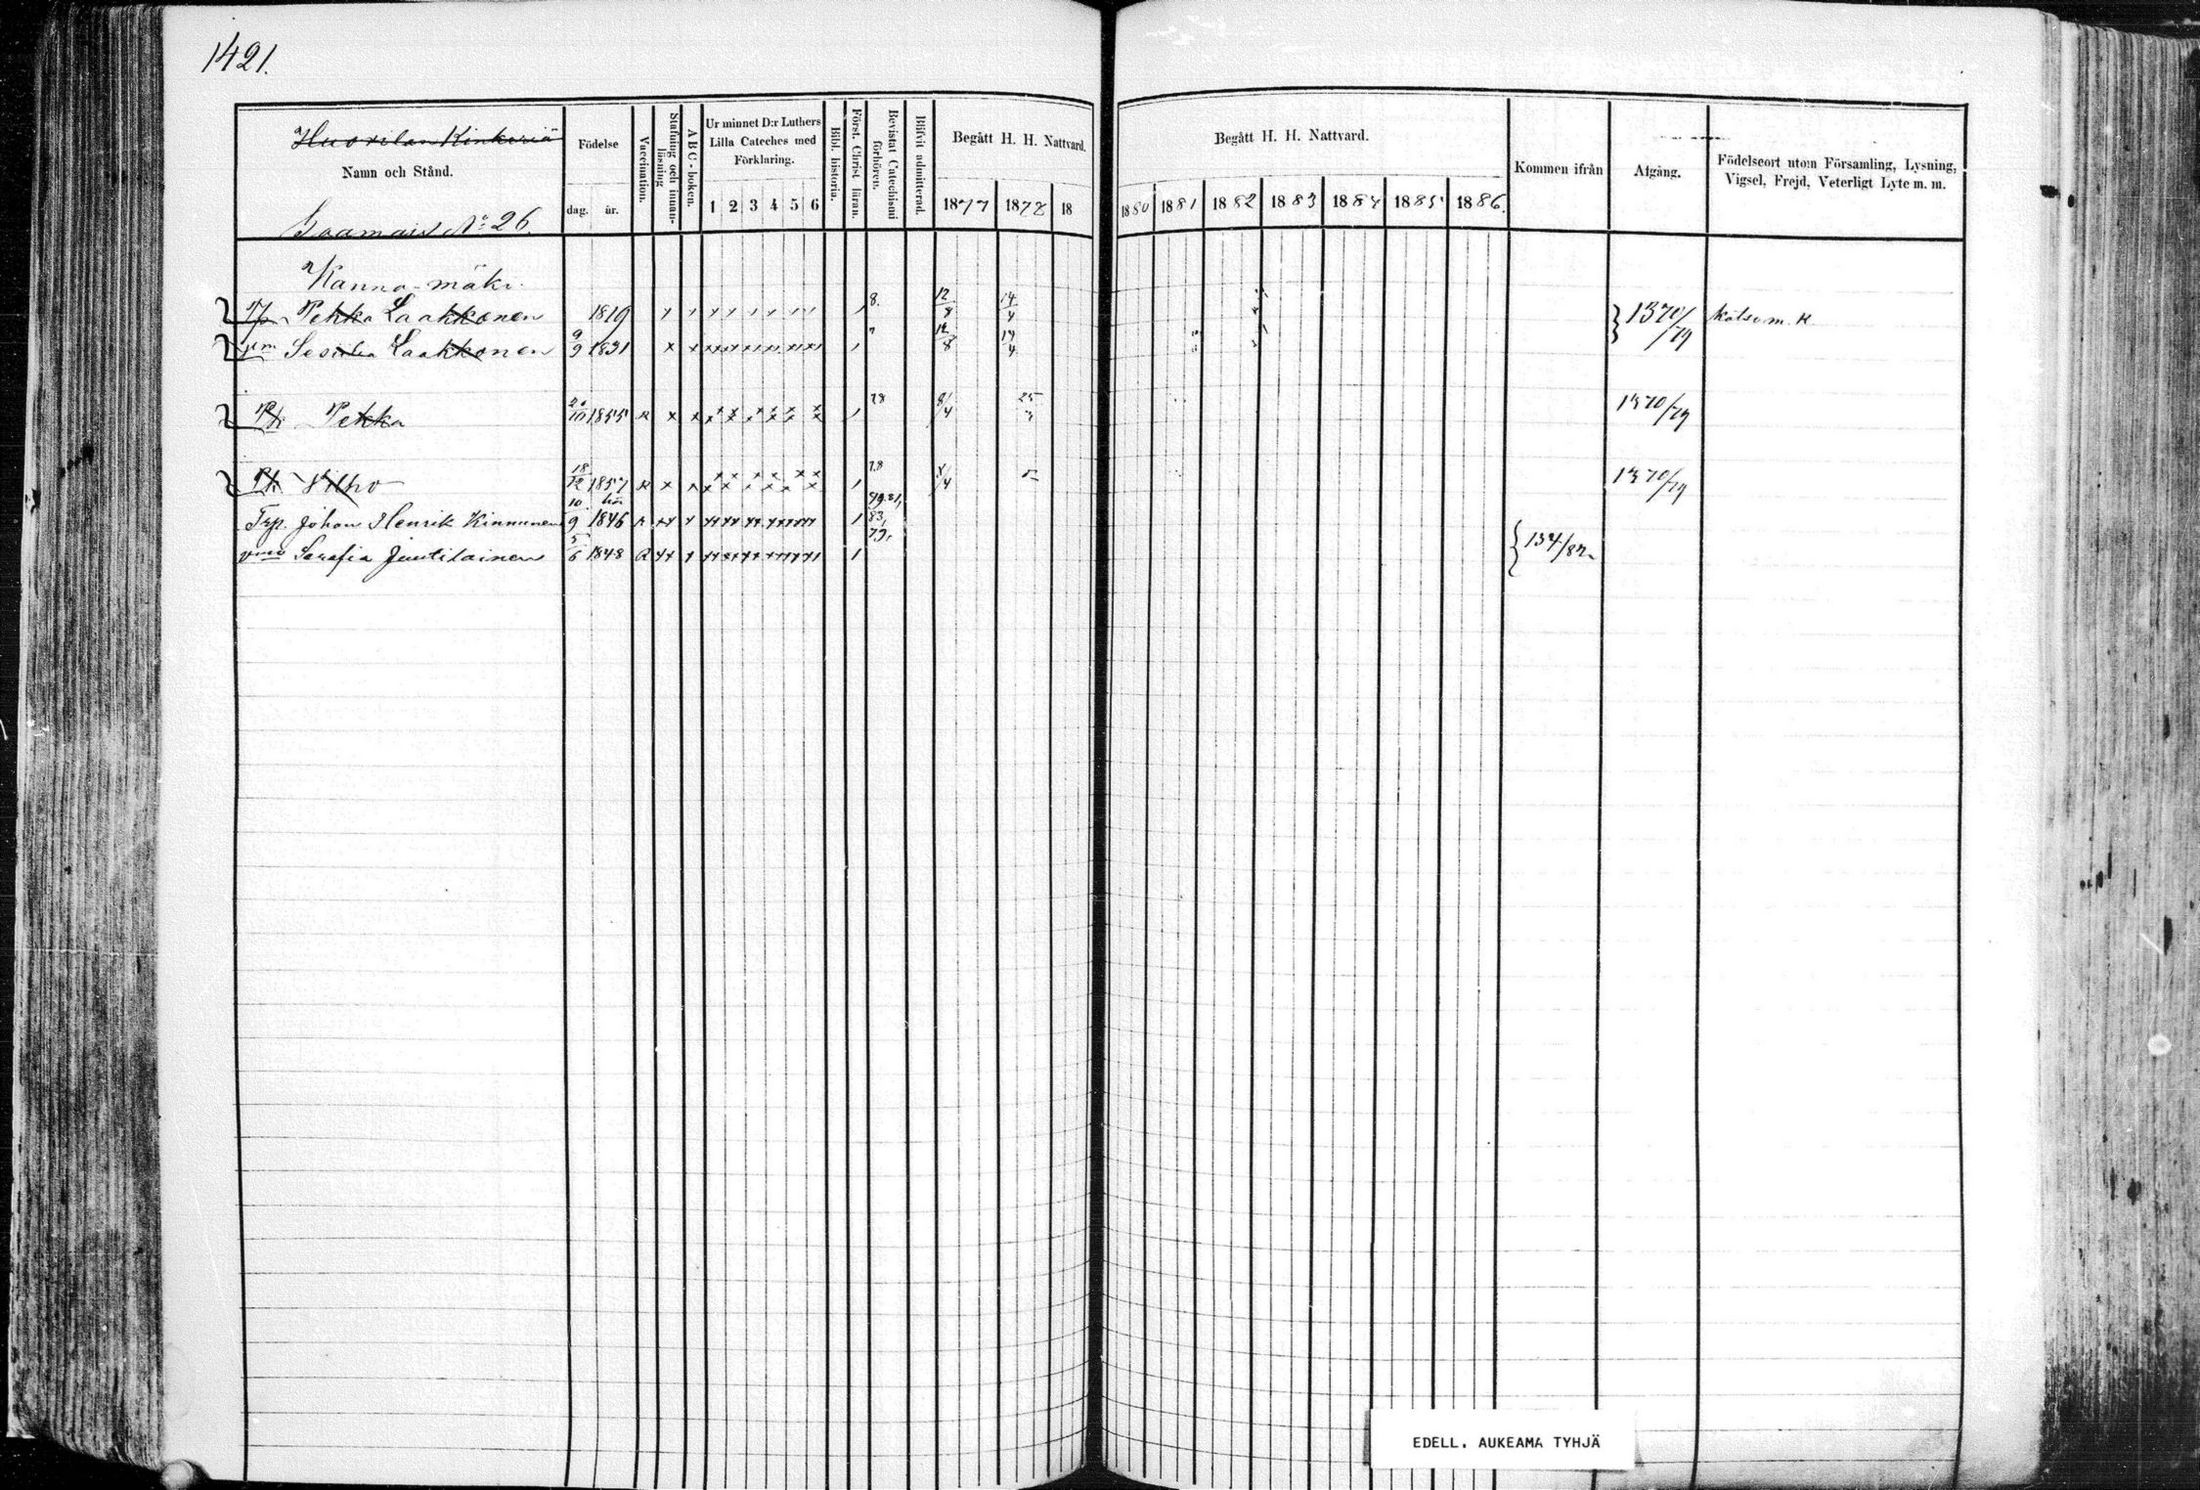 1421.
Huovilan Kinkeriä
Namn och Stånd.
Saamais No 26
Födelse
dag. år.
Vaccination.
Stafning och innan-läsning
ABC-boken.
Ur minnet D:r Luthers Lilla Cateches med Förklaring.
1 2 3 4 5 6
Bibl. historia.
Först. Christ. läran.
Bevistat Catechismi förhören.
Blifvit admitterad.
Begått H. H. Nattvard.
1877 1878 18
Begått H. H. Nattvard.
1880 1881 1882 1883 1884 1885 1886.
Kommen ifrån
Afgång.
Födelseort utom Församling, Lysning, Vigsel, Frejd, Veterligt Lyte m. m.
Kanna-mäki.
Pekka Laakkonen 1819 8. 12/8 14/4 1370/79
Laakkonen 9/9 1831 12/8 14/4
Pekka 1855 R 78 25 1370/79
Vilho 18/12 1857 R 78 1370/79
Johan Henrik Kinnunen 10/9 1846 R 83,
Serafia Juutilainen 5/6 1848 R 79, 134/82
EDELL. AUKEAMA TYHJÄ